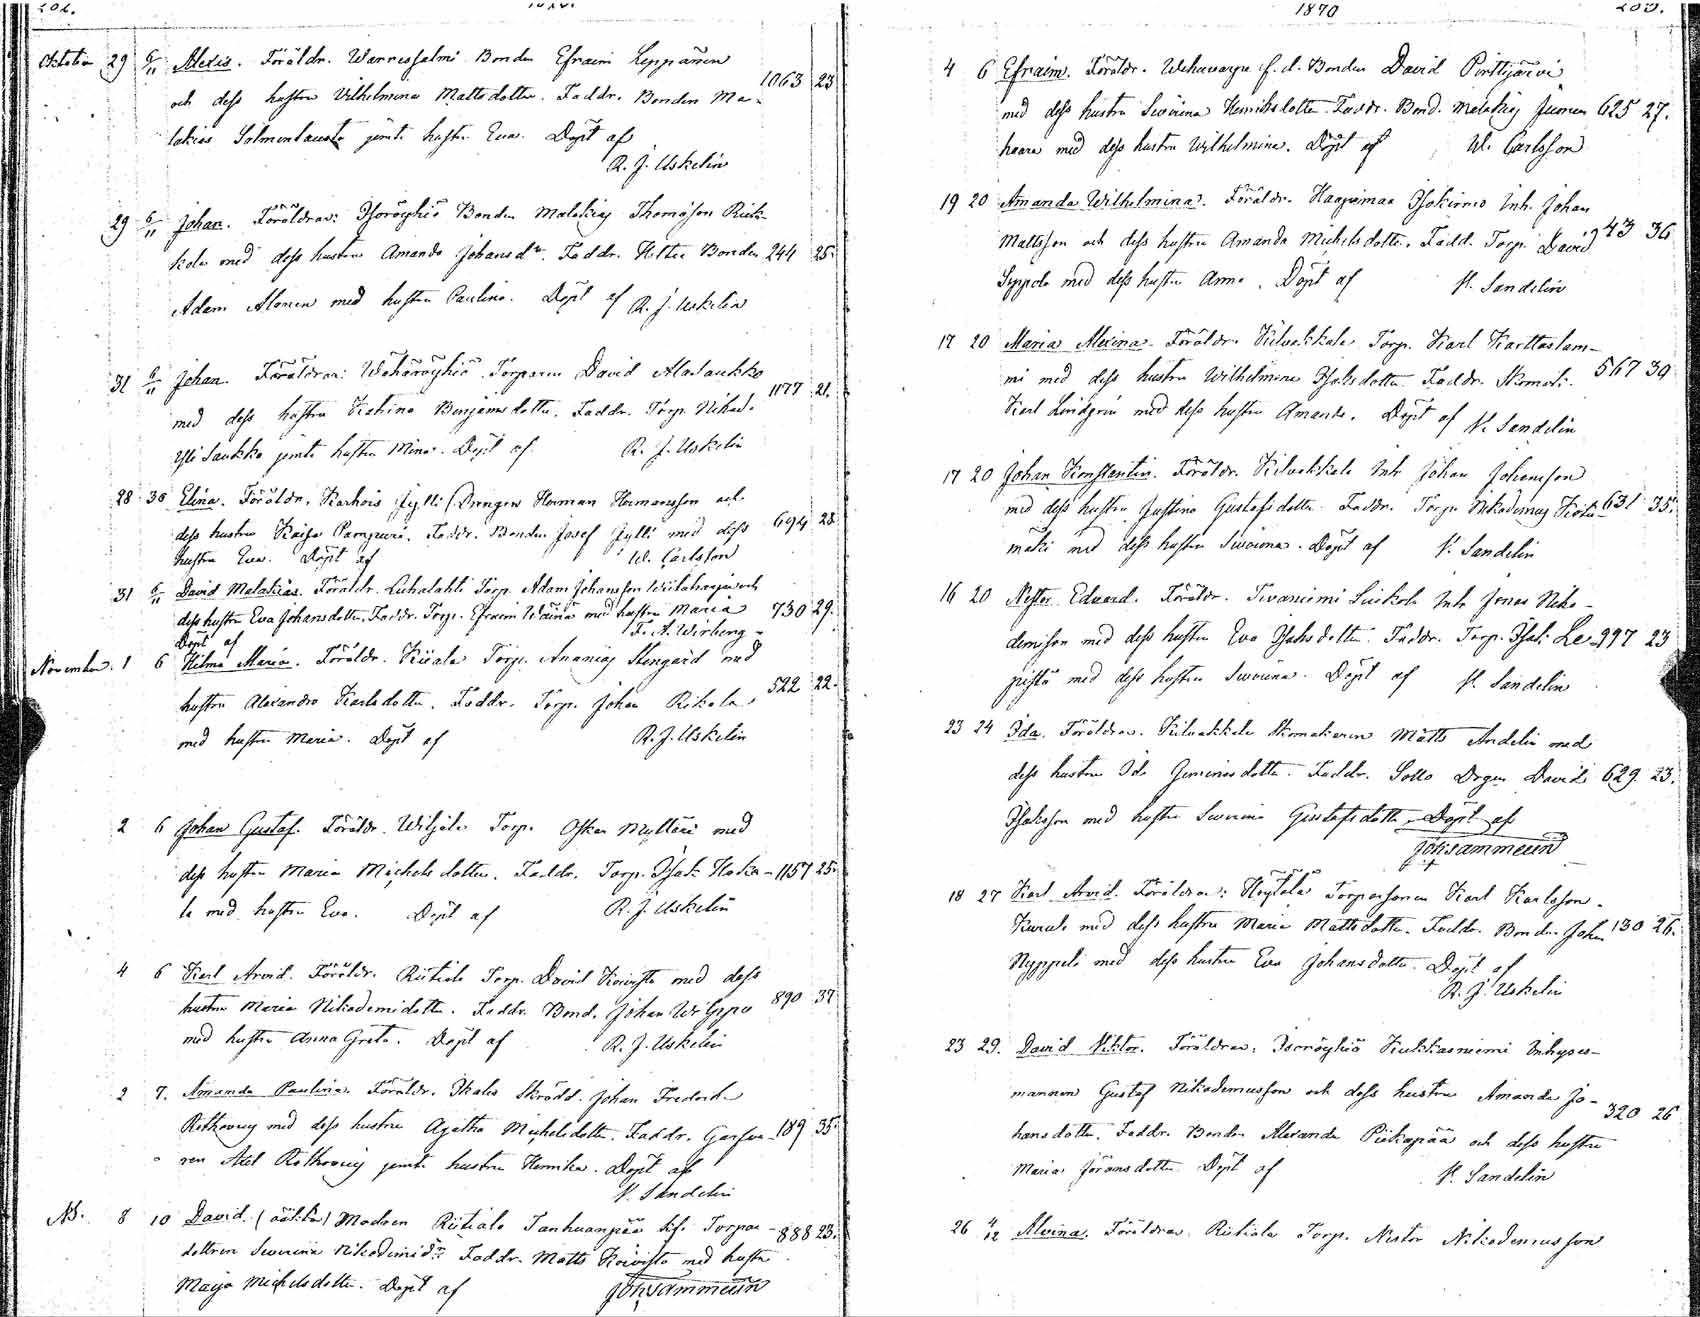 202.
Oktober 29 6/11 Alexis. Föräldr. Warressalmi Bonden Efraim Leppänen
och dess hustru Vilhelmina Mattsdotter. Faddr. Bonden Ma- 1063 23
lakias Salmenlausta jemte hustru Eva. Döpt af
R. J. Uskelin
29 6/11 Johan. Föräldrar: Isoröyhiö Bonden Malakias Thomasson Rick-
kola med dess hustru Amanda Johansdr. Faddr. Bonden 244 25.
Adam Alonen med hustru Paulina. Döpt af R. J. Uskelin
31 6/11 Johan. Föräldrar: Wähäröyhiö Torparen David Alasaukko
med dess hustru Katrina Benjamsdotter. Faddr. Torp. Nikod. 1177 21.
Yli Saukko jemte hustru Mina. Döpt af R. J. Uskelin
28 30 Elina. Föräldr. Karhois Jylli Drengen Herman Hermansson och
dess hustru Kaisa Pampuri. Faddr. Bonden Josef Jylli med dess 694 28
hustru Eva. Döpt af W. Carlsson
31 6/11 David Malakias. Föräldr. Luhalahti Torp. Adam Johansson och
dess hustru Eva Johansdotter. Faddr. Torp. Efraim med hustru Maria 730 29.
Döpt af F. A. Wirberg
November. 1 6 Hilma Maria. Föräldr. Kiiala Torp. Ananias Stengård med
hustru Alexandra Karlsdotter. Faddr. Torp. Johan Rikala 522 22.
med hustru Maria. Döpt af R. J. Uskelin
2 6 Johan Gustaf. Föräldr. Wiljala Torp. Oskar Mylläri med
dess hustru Maria Michelsdotter. Faddr. Torp. Isak Haka- 1157 25.
la med hustru Eva. Döpt af R. J. Uskelin
4 6 Karl Arvid. Föräldr. Riitiala Torp. David Koivisto med dess
hustru Maria Nikodemidotter. Faddr. Bond. Johan Wilppu 890 37
med hustru Anna Greta. Döpt af R. J. Uskelin
2 7. Amanda Paulina. Föräldr. Ikalis Skrädd. Johan Fredrik
Rothovius med dess hustru Agatha Michelsdotter. Faddr. Garfva- 189 35.
ren Axel Rothovius jemte hustru Henrika. Döpt af
N. Sandelin
NB. 8 10 David. (oäkta) Modren Riitiala Tanhuanpää Torpar- 888 23.
dottren Severina Nikodemidr. Faddr. Matts Koivisto med hustru
Maija Michelsdotter. Döpt af Joh. Sammeun
1870
203.
4 6 Efraim. Föräldr. Wehuvarpe f. d. Bonden David Pirttijärvi
med dess hustru Severina Henriksdotter. Faddr. Bond. Malakias Jumes- 625 27.
haara med dess hustru Wilhelmina. Döpt af W. Carlsson
19 20 Amanda Wilhelmina. Föräldr. Haapimaa Isokinno Inh. Johan
Mattsson och dess hustru Amanda Michelsdotter. Fadd. Torp. David 43 36
Seppola med dess hustru Anna. Döpt af N. Sandelin
17 20 Maria Alexina. Föräldr. Kilvakkala Torp. Karl Karttaslam-
mi med dess hustru Wilhelmina Isaksdotter. Faddr. Skomak. 567 39
Karl Lindgrén med dess hustru Amanda. Döpt af N. Sandelin
17 20 Johan Konstantin. Föräldr. Kilvakkala Inh. Johan Johansson
med dess hustru Justina Gustafsdotter. Faddr. Torp. Nikodemus Koivu- 631 35.
mäki med dess hustru Severina. Döpt af N. Sandelin
16 20 Nestor Edvard. Föräldr. Tevaniemi Inh. Jonas Niko-
demsson med dess hustru Eva Isaksdotter. Faddr. Torp. Isak Le- 997 23
pistö med dess hustru Severina. Döpt af N. Sandelin
23 24 Ida. Föräldrar. Kilvakkala Skomakaren Matts Andelin med
dess hustru Ida Geminisdotter. Faddr. Sotto Drgn. David 629. 23.
Isaksson med hustru Severina Gustafsdotter. Döpt af
Joh. Sammeun
18 27 Karl Arvid. Föräldrar: Höytölä Torparsonen Karl Karlsson
Kurala med dess hustru Maria Mattsdotter. Faddr. Bonden Johan 130 26.
Nyppeli med dess hustru Eva Johansdotter. Döpt af
R. J. Uskelin
23 29. David Viktor. Föräldrar: Isoröyhiö Kukkasniemi Inhyses-
mannen Gustaf Nikodemusson och dess hustru Amanda Jo- 320 26
hansdotter. Faddr. Bonden Alexander Piikapää och dess hustru
Maria Göransdotter. Döpt af N. Sandelin
26 4/12 Alvina. Föräldrar Riitiala Torp. Nestor Nikodemusson